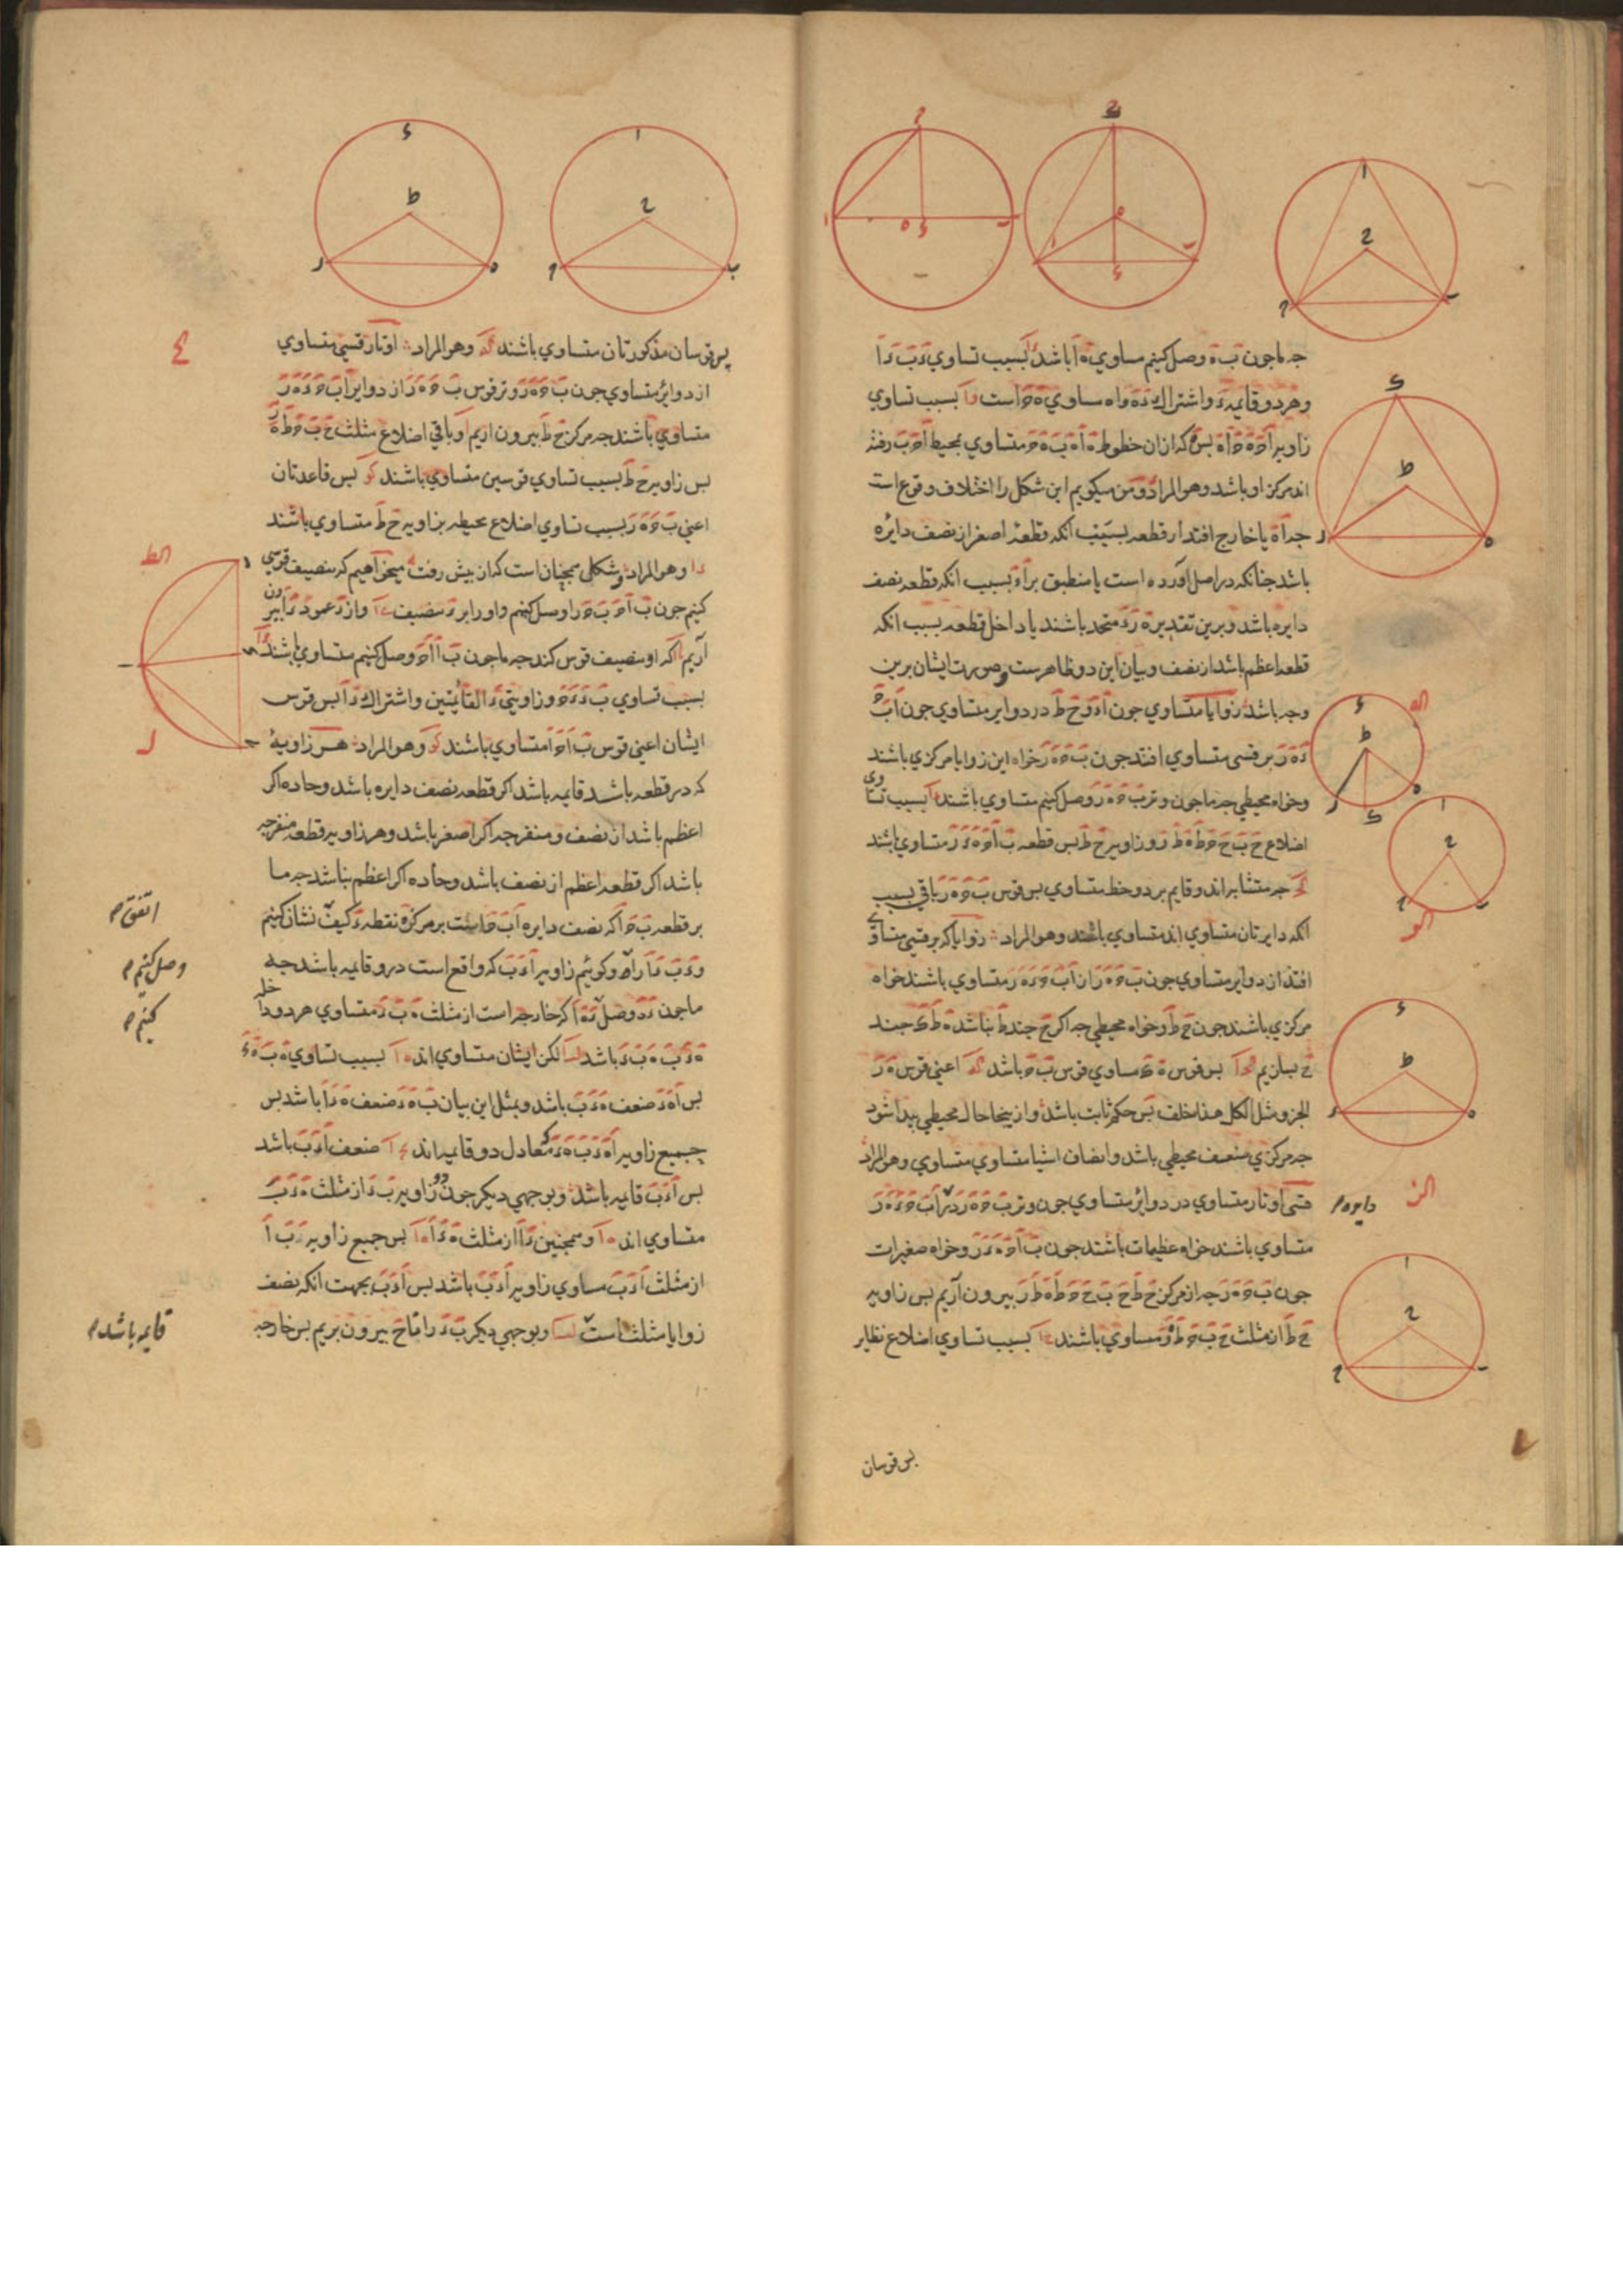 جه ماجون ب ه وصل کنیم مساوي ه ا باشد بسبب تساوي د ب د ا
وهردو قایمه د واشتراك د ه واه مساوي ه ح است بسبب تساوي
زاویه ا ح ه ح ا ه بس ه که ازان خطوط ه ا ه ب ه ح متساوي بمحیط ا ح ب رفته
اند مرکز او باشد وهو المراد ومن میکویم این شکل را اختلاف وقوع است
جه ا ه یا خارج افتد از قطعه بسبب انکه قطعه اصغر از نصف دایره
باشد جنانکه در اصل اورده است یا منطبق بر ا د بسبب انکه قطعه نصف
دایره باشد وبرین تقدیر ه د متحد باشند یا داخل قطعه بسبب انکه
قطعه اعظم باشد از نصف وبیان این دو ظاهرست وصورت ایشان برین
وجه باشد زوایا متساوي جون ا د و ح ط در دوایر متساوي جون ا ب ح
د ه ر بر قسی متساوي افتد جون ب ح ه ر خواه این زوایا مرکزي باشند
وخواه محیطي جه ماجون وتر ب ح ه ر وصل کنیم متساوي باشند بسبب تساوي
اضلاع ح ب ح ح ط ه ط ر وزاویه ح ط بس قطعه ب ا ح ه د ر متساوي باشند
جه متشابه اند وقایم بر دو خط متساوي بس قوس ب ح ه ر باقي بسبب
انکه دایرتان متساوي اند متساوي باشند وهو المراد زوایا که بر قسي متساوي
افتد از دوایر متساوي جون ب ح ه ر از ا ب ح د ه ر متساوي باشند خواه
مرکزي باشند جون ح ط وخواه محیطي جه اکر ح جند ط نباشد ه ط ك جند
ح بسازیم بس قوس ه ك مساوي قوس ب ح باشد اعني قوس ه ر
الجزو مثل الکل هذا خلف بس حکم ثابت باشد وازینجا حال محیطي بیدا شود
جه مرکزي ضعف محیطي باشد وانصاف اشیا متساوي متساوي وهو المراد
قسي اوتار متساوي در دوایر متساوي جون وتر ب ح ه ر در ا ب ح د ه ر
دایره م
متساوي باشند خواه عظیمات باشند جون ب ا ح ه د ر وخواه صغیرات
جون ب ح ه ر جه از مرکز ح ط ح ب ح ح ط ه ط ر بیرون آریم بس زاویه
ح ط از مثلث ح ب ح ط ه ر مساوي باشند بسبب تساوي اضلاع نظایر
بس قوسان
بس قوسان مذکورتان متساوي باشند وهو المراد اوتار قسي متساوي
از دوایر متساوي جون ب ح ه ر وتر قوس ب ح ه ر از دوایر ا ب ح د ه ر
متساوي باشند جه مرکز ح ط بیرون اریم وباقي اضلاع مثلث ح ب ح ط ه ر
بس زاویه ح ط بسبب تساوي قوسین متساوي باشند بس قاعدتان
اعني ب ح ه ر بسبب تساوي اضلاع محیطه بزاویه ح ط متساوي باشند
وهو المراد وشکلی همجنان است که از بیش رفت میخواهیم که تنصیف قوسي
کنیم جون ب ا ح ب ح را وصل کنیم واورا بر د تنصیف واز د عمود د ا بیرون
آریم که او تنصیف قوس کند جه ماجون ب ا ا ح وصل کنیم متساوي باشند
بسبب تساوي ب د د ح وزاویتي د القایمتین واشتراك د ا بس قوس
ایشان اعني قوس ب ا ح ا متساوي باشند وهو المراد هر زاویه
که در قطعه باشد قایمه باشد اکر قطعه نصف دایره باشد وحاده اکر
اعظم باشد از نصف ومنفرجه اکر اصغر باشد وهر زاویه قطعه منفرجه
باشد اکر قطعه اعظم از نصف باشد وحاده اکر اعظم نباشد جه ما
بر قطعه ب ح ا که نصف دایره ا ب ح است بر مرکز ه نقطه د کیف نشان کنیم
اتفق م
ود ب د ا را وکوئیم زاویه ا د ب که واقع است درو قایمه باشد جه
وصل کنیم م
ماجون د ه وصل د ه ا که خارجه است از مثلث ه ب د متساوي هر دو داخله
کنیم م
ه د ب ه ب د باشد لکن ایشان متساوي اند بسبب تساوي ه ب ه د
بس ا ه د ضعف ه د ب باشد وبمثل این بیان ب ه د ضعف ه د ا باشد بس
جمیع زاویه ا ه د ب ه د که معادل دو قایمه اند ضعف ا د ب باشد
بس ا د ب قایمه باشد وبوجهي دیکر جون دو زاویه ب د از مثلث ه د ب
متساوي اند وهمجنین د ا از مثلث ه د ا بس جمیع زاویه د ب ا
از مثلث ا د ب مساوي زاویه ا د ب باشد بس ا د ب بجهت انکه نصف
زوایا مثلث است وبوجهي دیکر ب د را تا ح بیرون بریم بس خارجه
قایمه باشد م